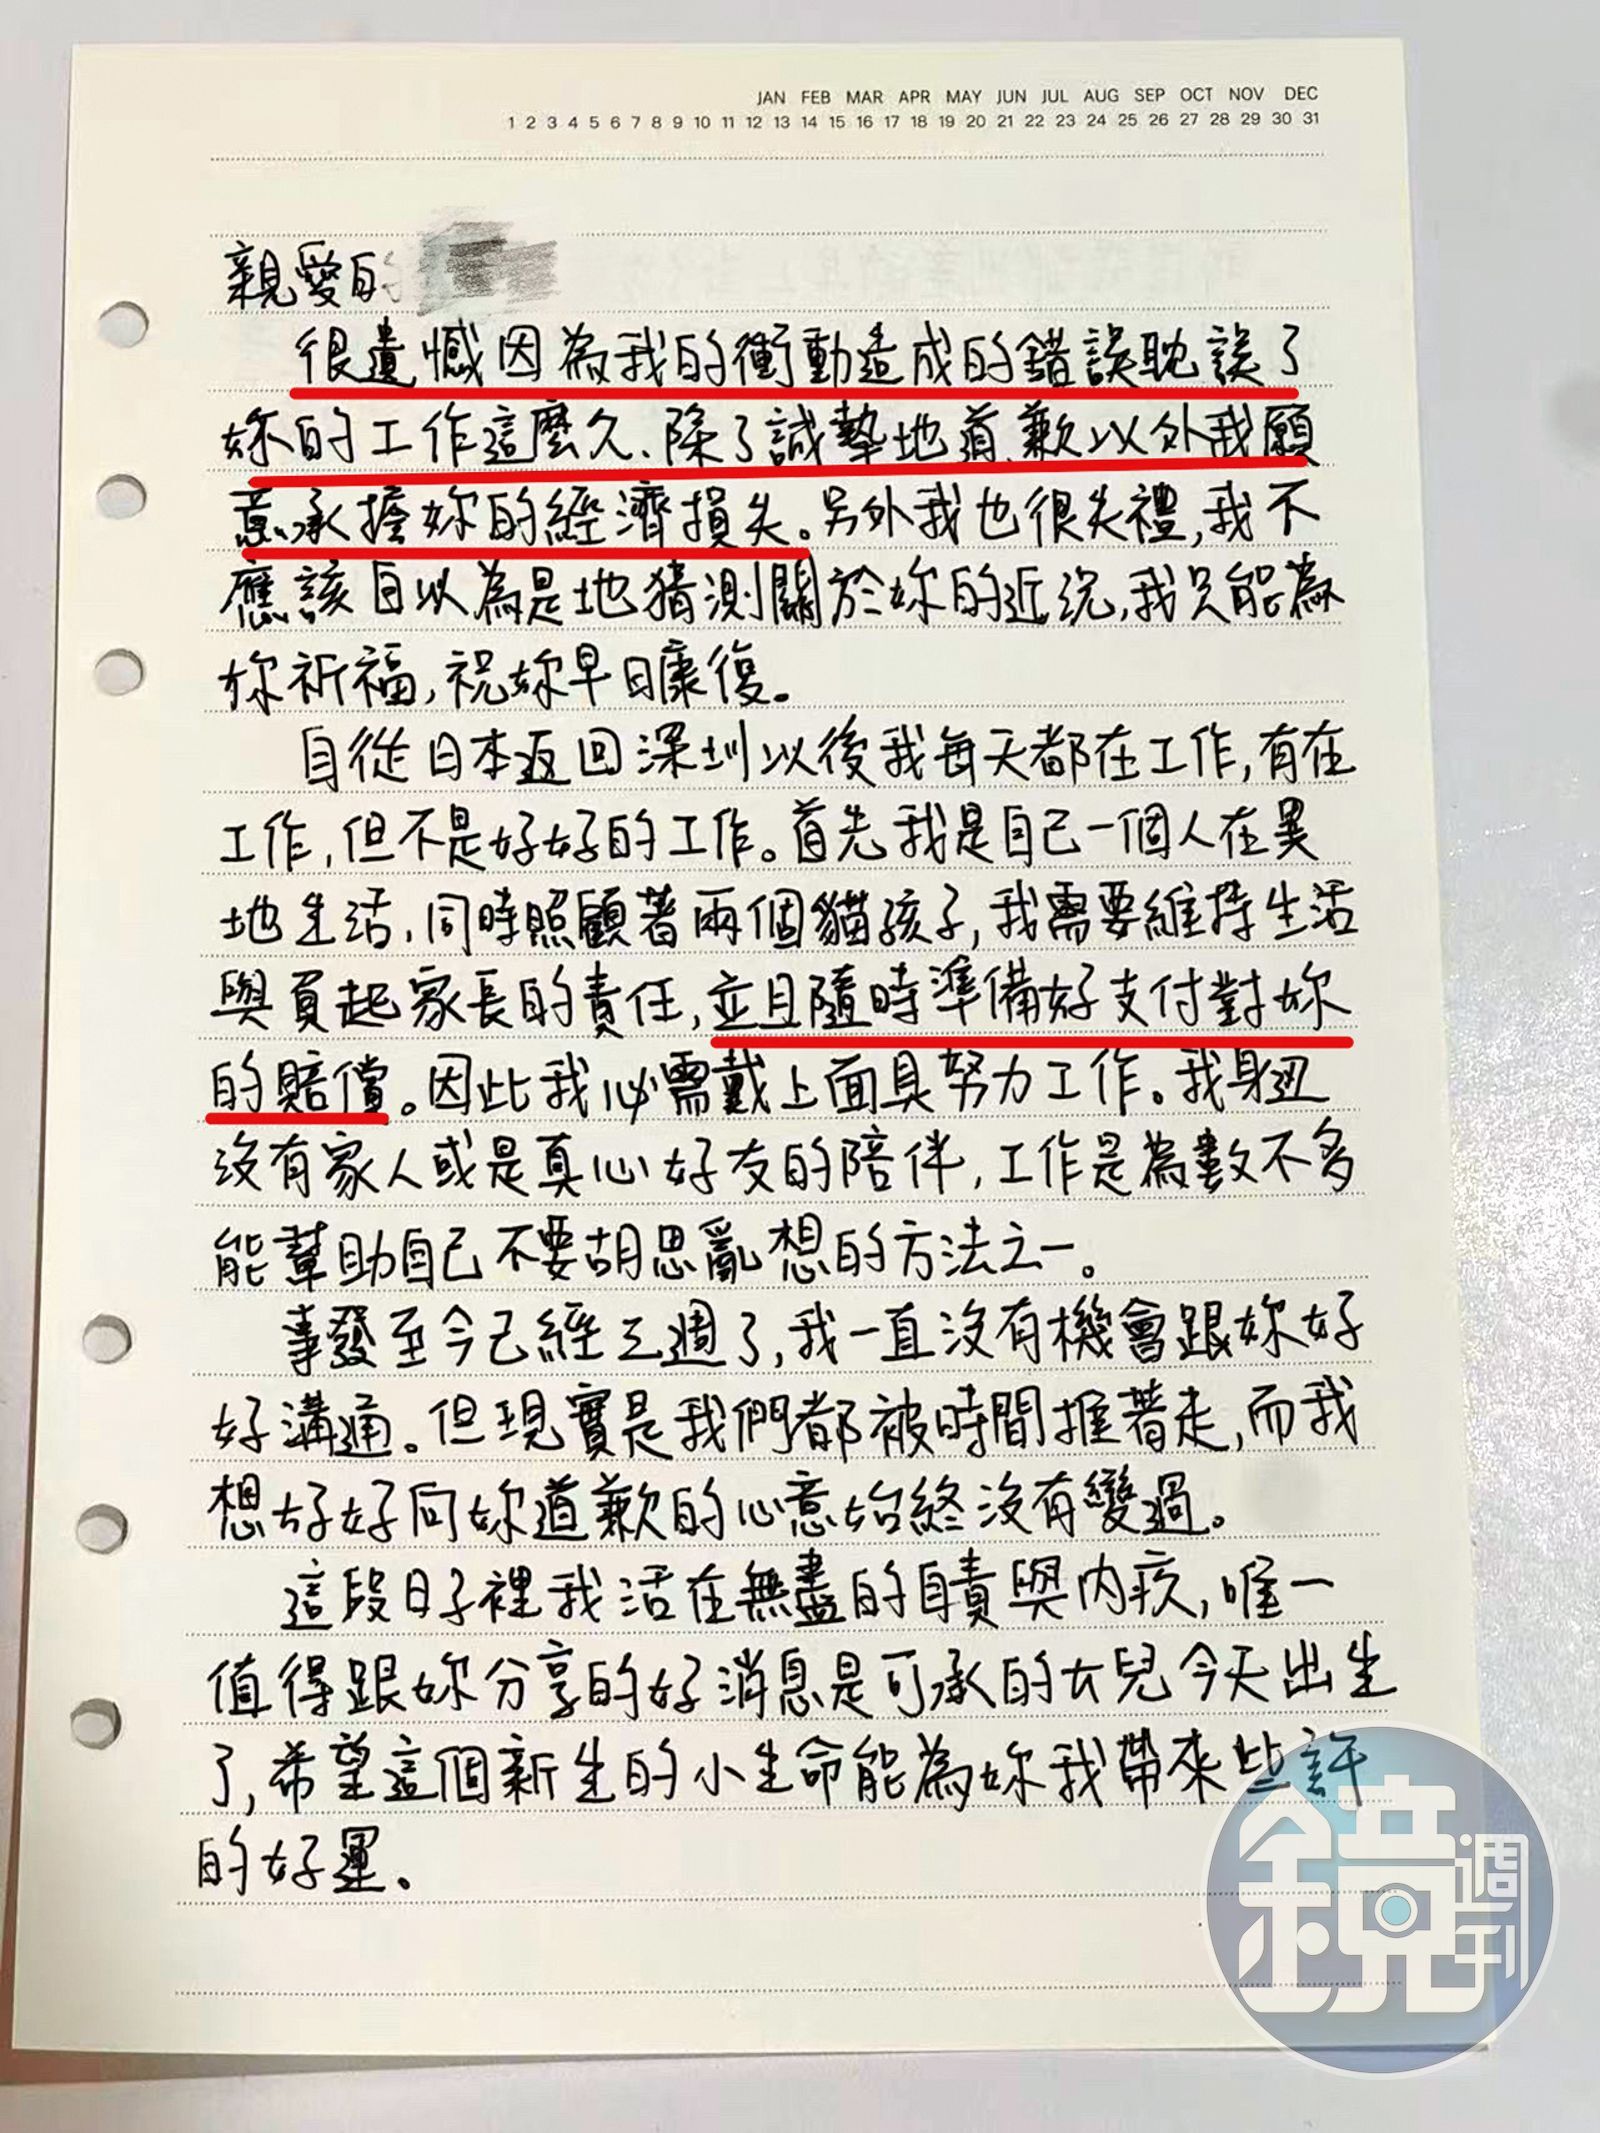 JAN FEB MAR APR MAY JUN JUL AUG SEP OCT NOV DEC
1 2 3 4 5 6 7 8 9 10 11 12 13 14 15 16 17 18 19 20 21 22 23 24 25 26 27 28 29 30 31
親愛的
很遺憾因為我的衝動造成的錯誤耽誤了
妳的工作這麼久、除了誠摯地道歉以外我願
意承擔妳的經濟損失。另外我也很失禮,我不
應該自以為是地猜測關於妳的近況,我只能為
妳祈福,祝妳早日康復。
自從日本返回深圳以後我每天都在工作,有在
工作,但不是好好的工作。首先我是自己一個人在異
地生活,同時照顧著兩個貓孩子,我需要維持生活
與負起家長的責任,並且隨時準備好支付對妳
的賠償。因此我必需戴上面具努力工作。我身邊
沒有家人或是真心好友的陪伴,工作是為數不多
能幫助自己不要胡思亂想的方法之一。
事發至今已經三週了,我一直沒有機會跟妳好
好溝通。但現實是我們都被時間推著走,而我
想好好向妳道歉的心意始終沒有變過。
這段日子裡我活在無盡的自責與內疚,唯一
值得跟妳分享的好消息是可承的女兒今天出生
了,希望這個新生的小生命能為妳我帶來些許
的好運。
鏡週刊